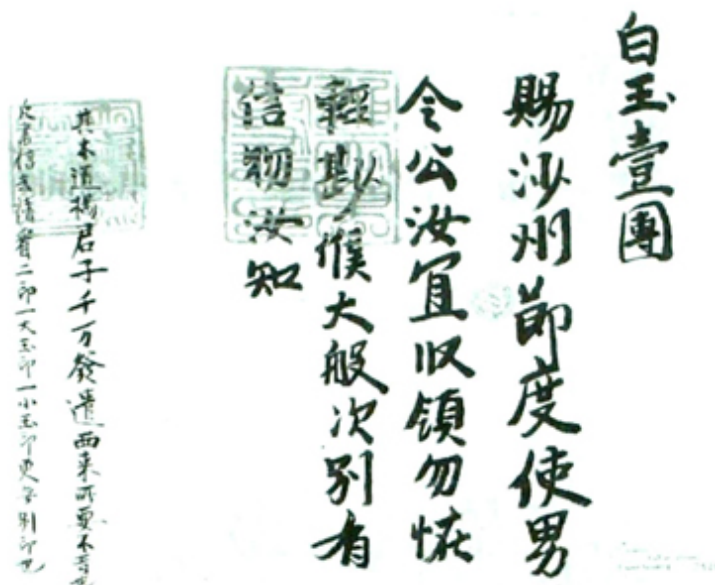 白玉壹團
賜沙州節度使男
令公汝宜收領勿怪
輕尠候大般次別有
信物汝知
其木道楊君子千万發遣西來所要不
次書信請看二印一大玉印一小玉印更分別印也